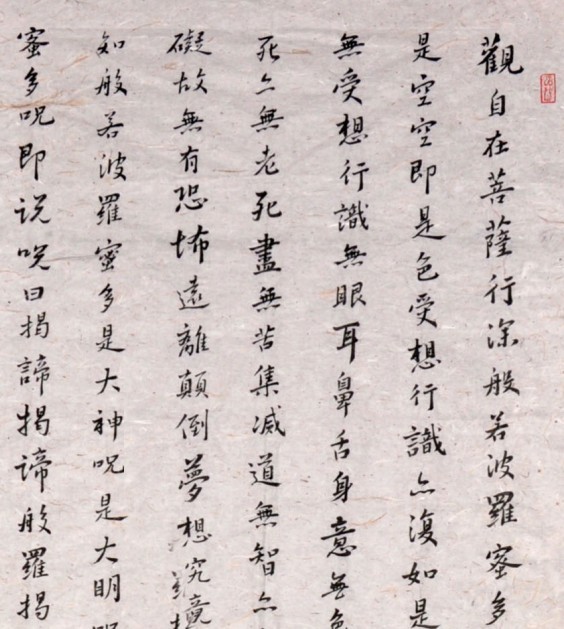 觀自在菩薩行深般若波羅蜜多
是空空即是色受想行識亦復如是
無受想行識無眼耳鼻舌身意無色
死亦無老死盡無苦集減道無智亦
礙故無有恐怖遠離顛倒夢想究竟
知般若波羅蜜多是大神呪是大明呪
蜜多呪即说呪曰揭諦揭諦般羅揭